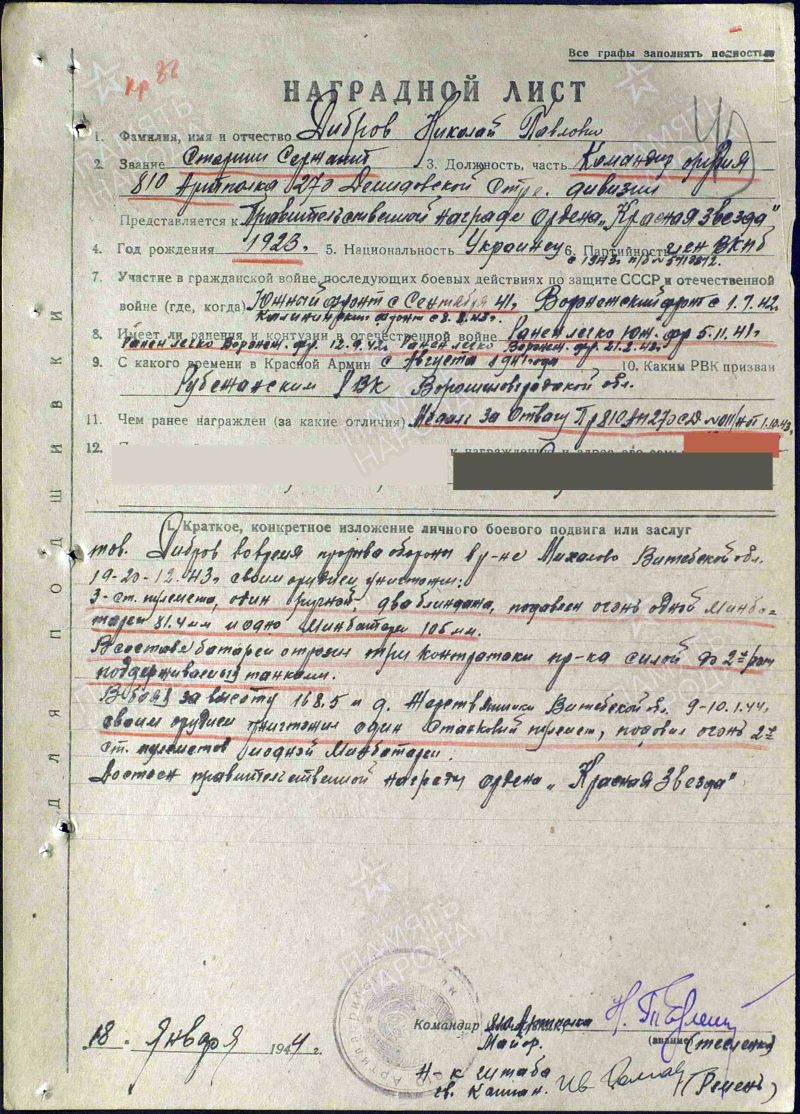 Все графы заполнять полностью
кр 32
НАГРАДНОЙ ЛИСТ
1. Фамилия, имя и отчество Дибров Николай Павлович
2. Звание Старший Сержант 3. Должность, часть Командир орудия
810 Артполка 270 Демидовской Стре. дивизии
Представляется к Правительственной награде ордена „Красная Звезда"
4. Год рождения 1923г. 5. Национальность Украинец 6. Партийность член ВКПб
с 1943г. п/б №
7. Участие в гражданской войне, последующих боевых действиях по защите СССР и отечественной
войне (где, когда) Южный фронт с Сентября 41г. Воронежский фрт с 1.7.42г.
Калининский фронт с 8.8.43г.
8. Имеет ли ранения и контузии в отечественной войне Ранен легко Юж. фр 5.11.41г.
Ранен легко Воронеж. фр. 12.9.42г. Ранен легко Воронеж. фр. 21.2.43г.
9. С какого времени в Красной Армии с Августа 1941 года 10. Каким РВК призван
Рубежанским РВК Ворошиловградской обл.
11. Чем ранее награжден (за какие отличия) Медаль за Отвагу Пр 810 АП 270 СД № 011/н от 1.10.43г.
12.
к награждению и адрес его семьи
I. Краткое, конкретное изложение личного боевого подвига или заслуг
тов. Дибров во время прорыва обороны в р-не Михалово Витебской обл.
19-20-12.43г. своим орудием уничтожил:
3-ст. пулемета, один ручной, два блиндажа, подавлен огонь одной минба-
тареи 81.4мм и одно минбатареи 105 мм.
В составе батареи отразил три контратаки пр-ка силой до 2х рот
поддерживаемый танками.
В боях за высоту 168.5 и д. Витебской обл. 9-10.1.44г.
своим орудием уничтожил один Станковый пулемет, подавил огонь 2х
ст. пулеметов и одной минбатареи.
Достоен правительственной награды ордена „Красная Звезда"
ДЛЯ ПОДШИВКИ
Командир 810 Артполка
18. Января 1944 г.
Майор. (звание) (Тесленко)
Н-к штаба
гв. Капитан.
ПАМЯТЬ НАРОДА